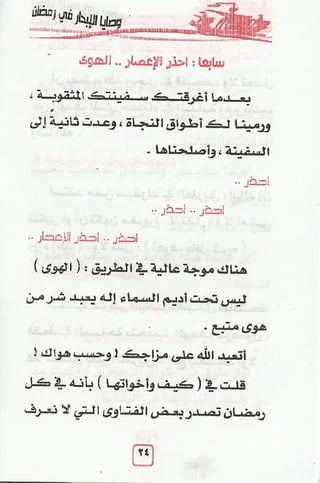 وصايا للإبحار في رمضان
سابعا : احذر الإعصار .. الهوى
بعدما أغرقتك سفينتك المثقوبة ،
ورمينا لك أطواق النجاة ، وعدت ثانية إلى
السفينة ، وأصلحناها .
احذر ..
احذر .. احذر ..
احذر .. احذر .. احذر الإعصار ..
هناك موجة عالية في الطريق : ( الهوى )
ليس تحت أديم السماء إله يعبد شر من
هوى متبع .
أتعبد الله على مزاجك ! وحسب هواك !
قلت في ( كيف وأخواتها ) بأنه في كل
رمضان تصدر بعض الفتاوى التي لا نعرف
٢٤